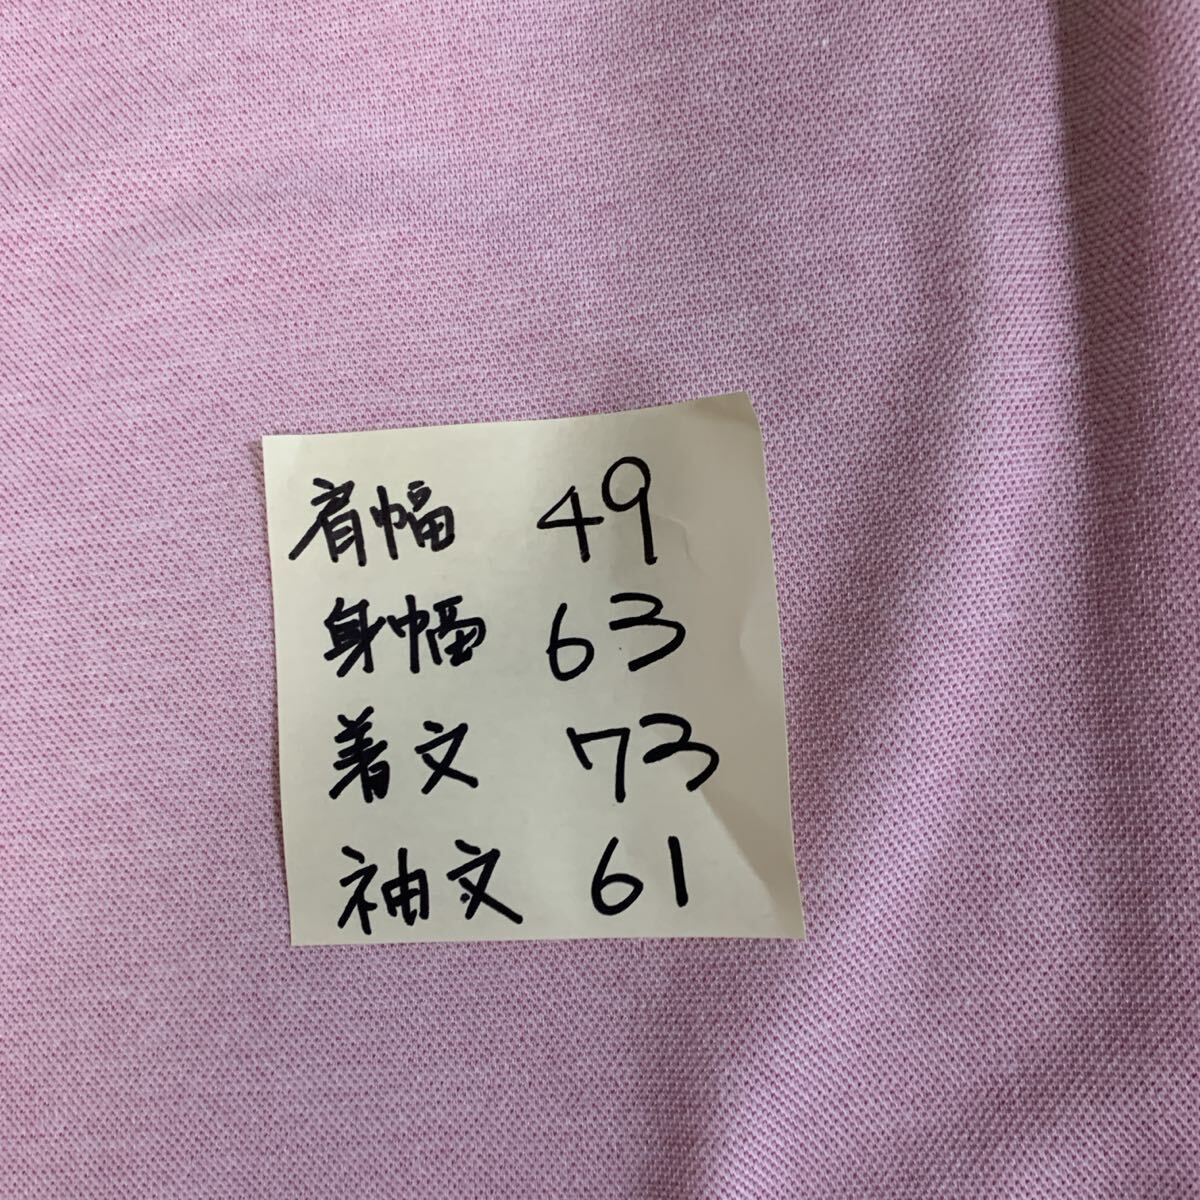 肩幅 49
身幅 63
着丈 73
袖丈 61